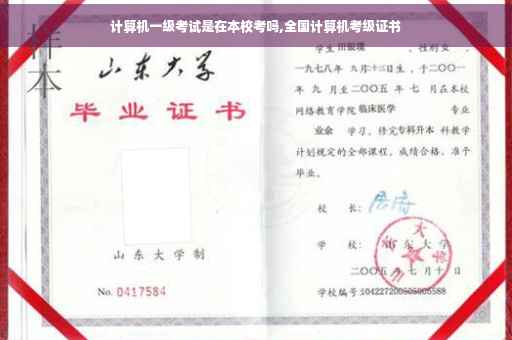 计算机一级考试是在本校考吗,全国计算机考级证书
样本
山东大学
毕业证书
山东大学制
No. 0417584
学生 田银瑞 ,性别女 ,
一九七八年 九月十三日生,于二〇〇一
年 九 月至二〇〇五 年 七 月在本校
网络教育学院临床医学 专业
业余 学习,修完专科升本 科教学
计划规定的全部课程,成绩合格,准予
毕业。
校 长:
学 校: 山东大学
二〇〇五年七月十日
学校编号:104227200505005588